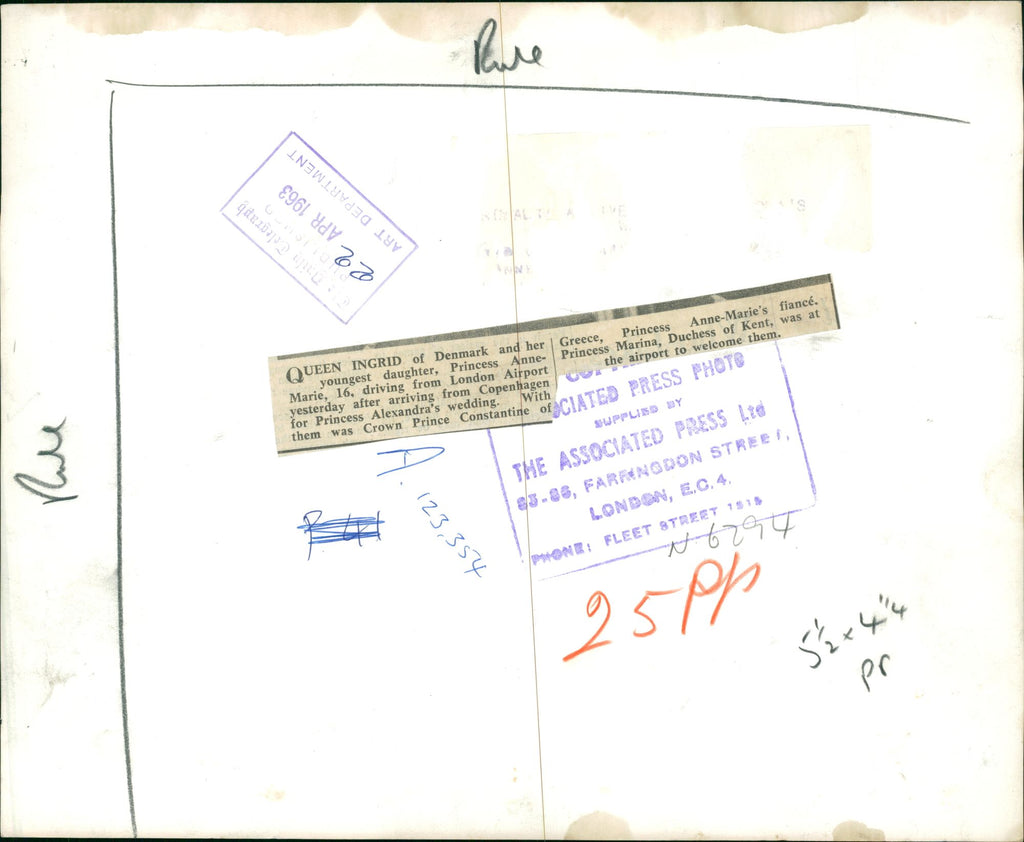 Rule
ART DEPARTMENT
22 APR 1963
The Daily Telegraph
QUEEN INGRID of Denmark and her
youngest daughter, Princess Anne-
Marie, 16, driving from London Airport
yesterday after arriving from Copenhagen
for Princess Alexandra's wedding. With
them was Crown Prince Constantine of
Greece, Princess Anne-Marie's fiancé.
Princess Marina, Duchess of Kent, was at
the airport to welcome them.
OCIATED PRESS PHOTO
SUPPLIED BY
THE ASSOCIATED PRESS Ltd
83-86, FARRINGDON STREET,
LONDON, E.C.4.
PHONE: FLEET STREET 1515
N 6294
D. 123,354
25 pp
5½ × 4"4
pr
Rule